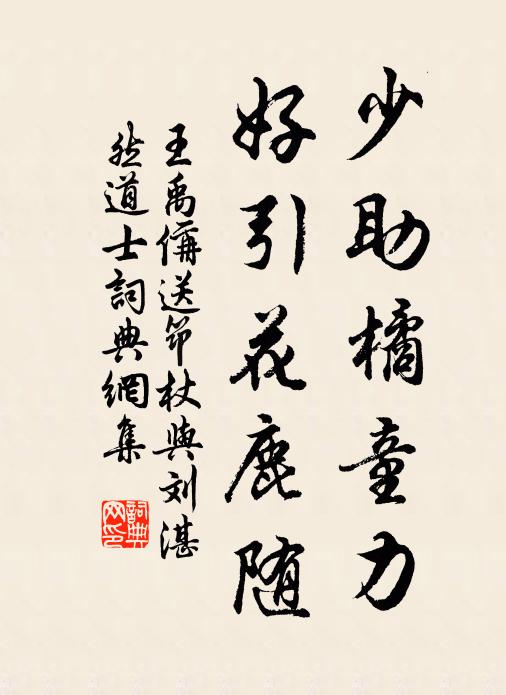 少助橘童力
好引花鹿随
王禹偁送筇杖與刘湛
然道士詞典網集
詞典网印